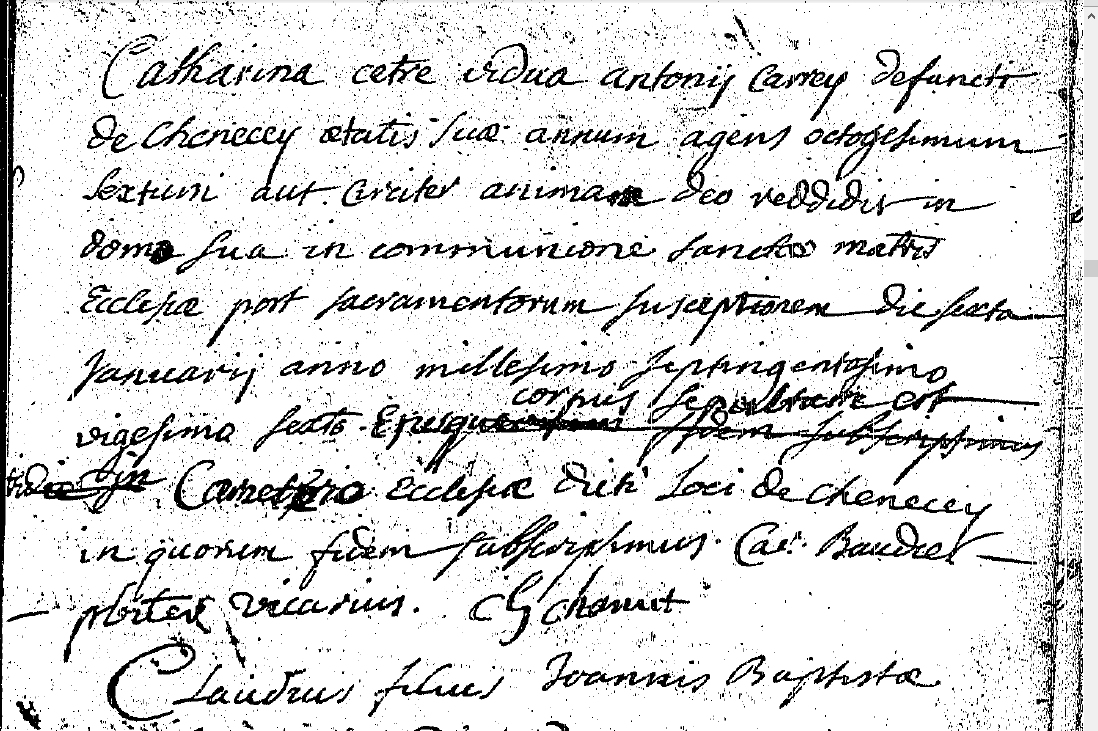 Catharina cetre vidua antonij Carrey defuncti
de Chenecey ætatis suæ annum agens octogesimum
sextum aut Circiter animam deo reddidit in
domo sua in communione sanctæ matris
Ecclesiæ post sacramentorum susceptionem die sexta
Januarij anno millesimo septingentesimo
corpus sepultum est
vigesimo sexto. Ejusque fidem subscripsimus
in Cœmeterio Ecclesiæ dicti Loci de Chenecey
in quorum fidem subscripsimus. Baudret
pbiter vicarius. Chamut
Claudius filius Joannis Baptistæ